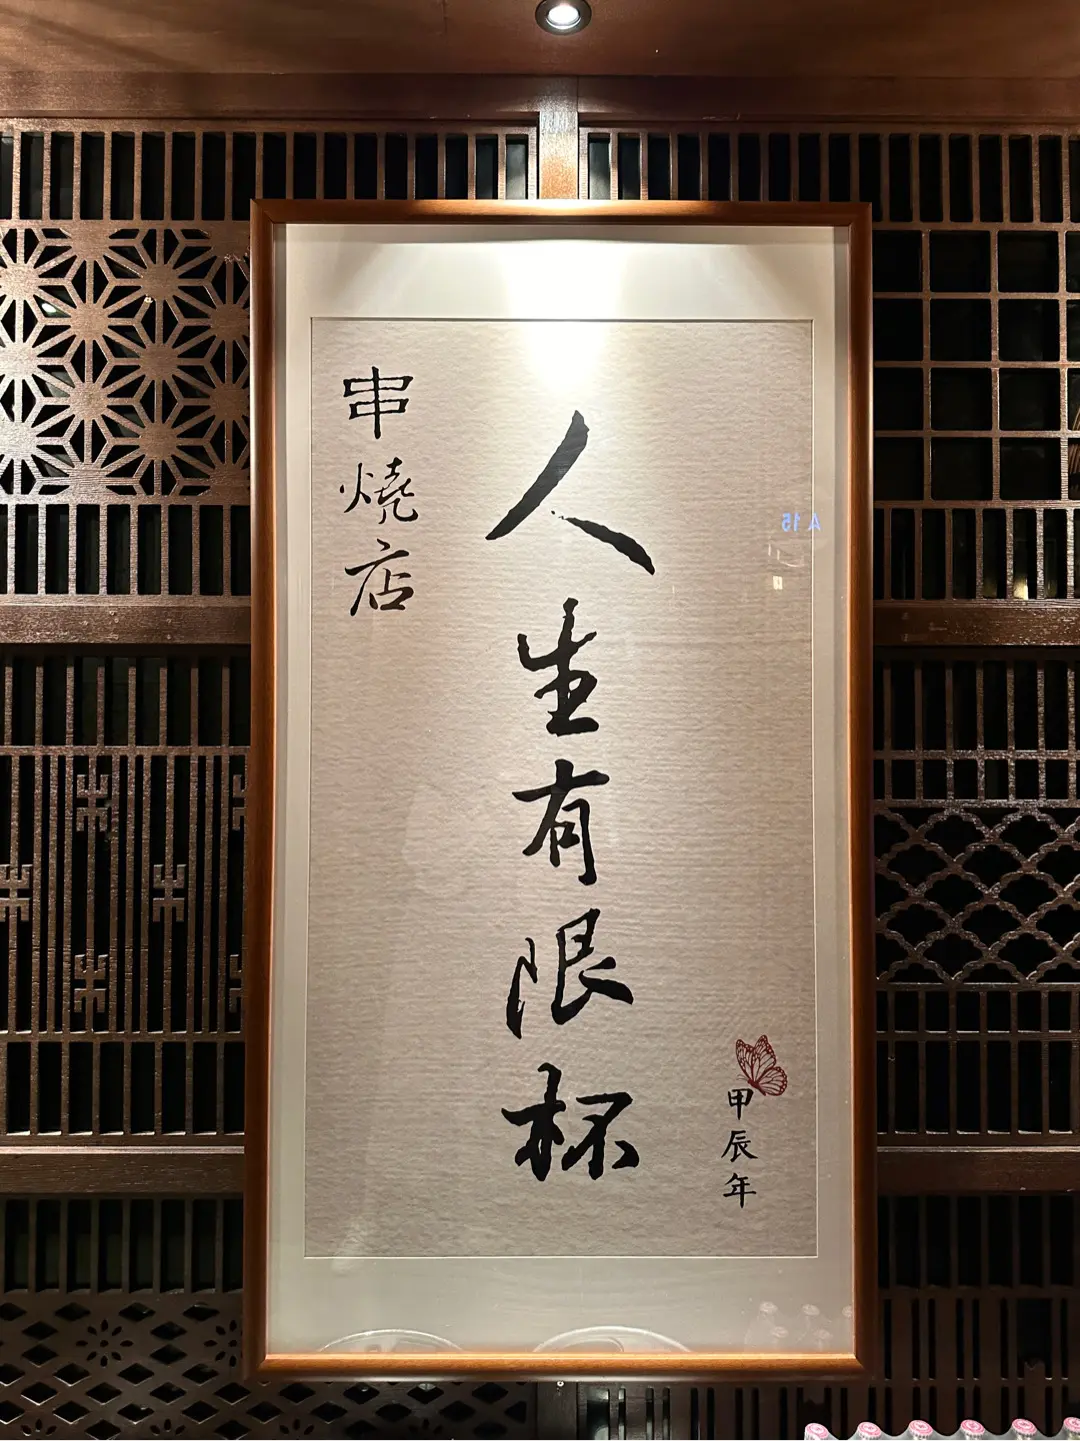 甲辰年
人生有限杯
串燒店
A 15